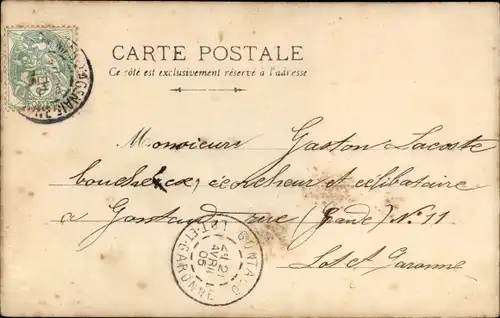 CARTE POSTALE
Ce côté est exclusivement réservé à l'adresse
Monsieur Gaston Lacoste
boucher, écorcheur et célibataire
a Gontaud rue (Grande) N° 11
Lot et Garonne
GONTAUD
21
AVRIL
05
LOT-ET-GARONNE